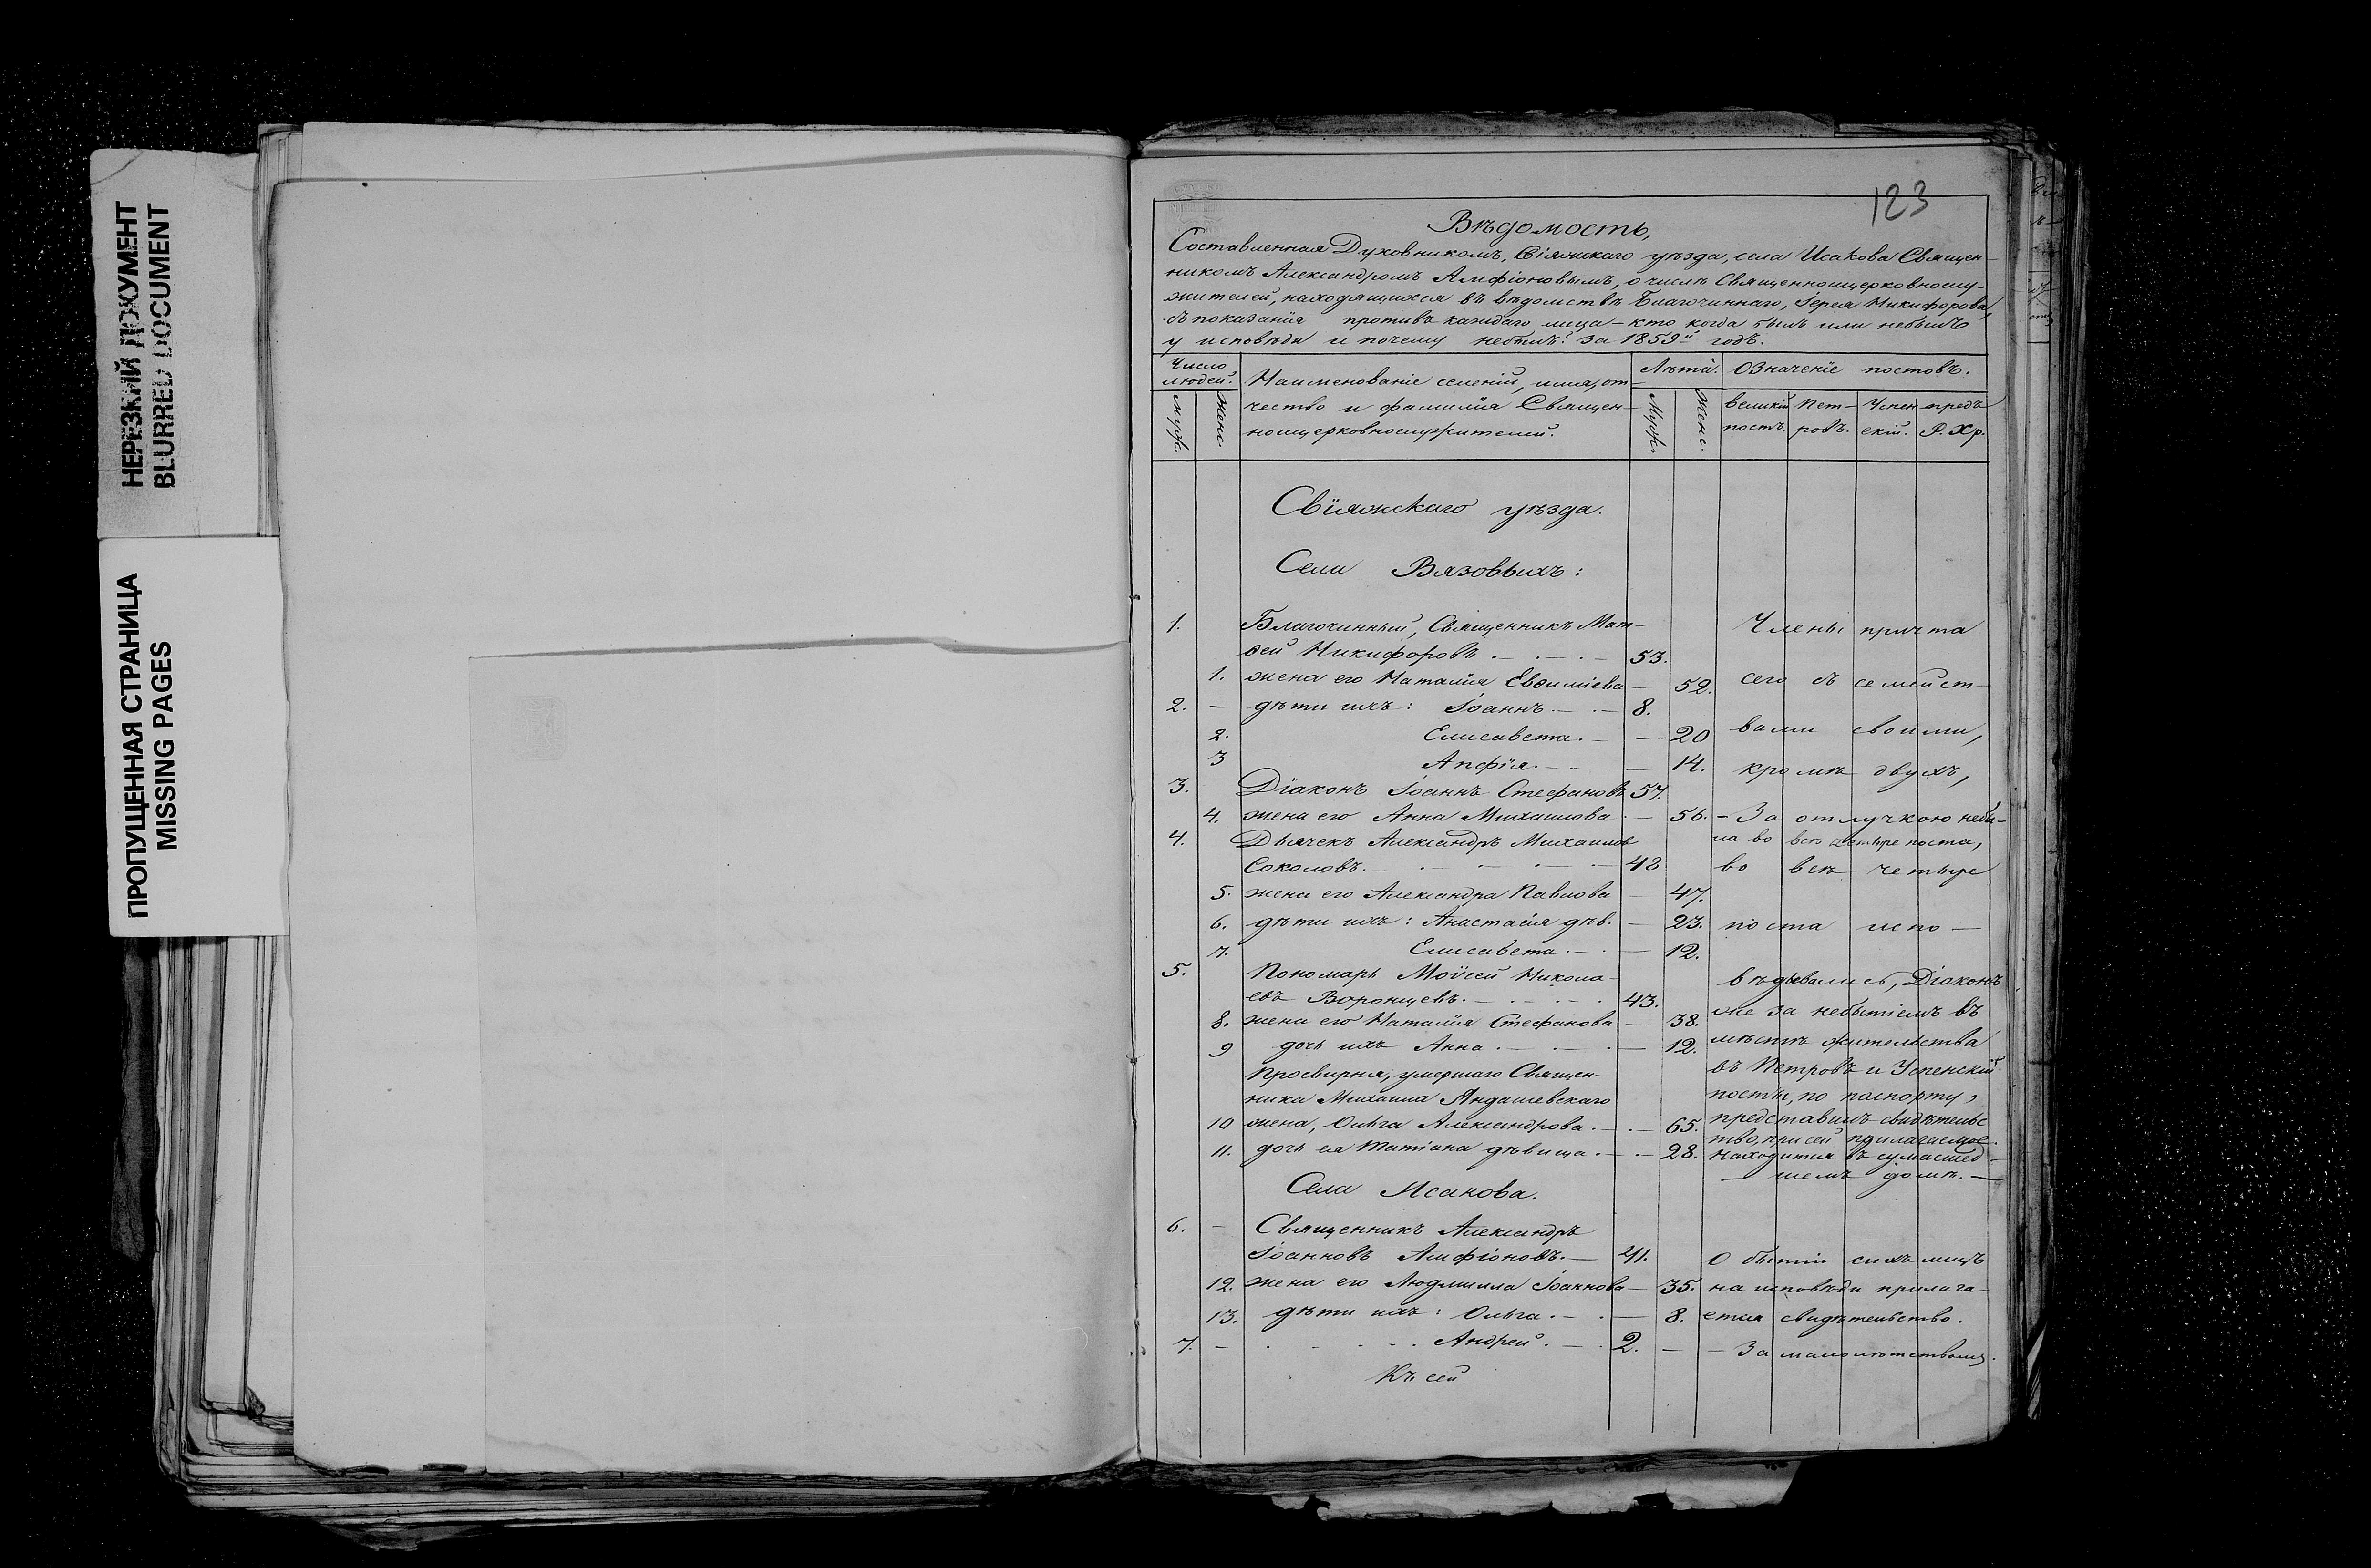 НЕРЕЗКИЙ ДОКУМЕНТ
BLURRED DOCUMENT
ПРОПУЩЕННАЯ СТРАНИЦА
MISSING PAGES
123
Вѣдомость,
Составленная Духовникомъ, Свіяжскаго уѣзда, села Исакова Священ-
никомъ Александромъ Амфіоновымъ, о числѣ Священноцерковнослу-
жителей, находящихся въ вѣдомствѣ Благочиннаго, Іерея Никифорова,
съ показанія противъ каждаго лица – кто когда былъ или небылъ
у исповѣди и почему небылъ: за 1859й годъ.
Число людей.
муж.
женс.
Наименованіе селеній, имя, от-
чество и фамилія Священ-
ноцерковнослужителей.
Лѣта.
Муж.
Женс.
Означеніе постовъ.
Великій постъ.
Пет-ровъ.
Успен скій.
предъ Р. Хр.
Свіяжскаго уѣзда.
Села Вязовыхъ:
1. Благочинный, Священникъ Мат- Члены причта
ѳей Никифоровъ 53.
1. жена его Наталія Евѳиміева 52. сего съ семейст-
2. – дѣти ихъ: Іоаннъ. 8.
2. Елисавета. 20 вами своими,
3 Апфія. 14. кромѣ двухъ,
3. Діаконъ Іоаннъ Стефановъ 57.
4. жена его Анна Михаилова 56. – За отлучкою небы-
4. Дьячекъ Александръ Михаиловъ ла во всѣ четыре поста,
Соколовъ. 48 во всѣ четыре
5. жена его Александра Павлова 47.
6. дѣти ихъ: Анастасія дѣв. 23. поста испо-
7. Елисавета. 12.
5. Пономарь Моѵсей Никола- вѣдывались, Діаконъ
евъ Воронцевъ. 43.
же за небытіемъ въ
8. жена его Наталія Стефанова 38.
9 дочь ихъ Анна. 12. мѣстѣ жительства
Просвирня, умершаго Священ- въ Петровъ и Успенскій
ника Михаила Яндашевскаго посты, по паспорту,
10 жена, Ольга Александрова. 65. представилъ свидѣтельс
тво, при сей прилагаемое.
11. дочь ея Татіана дѣвица. 28. находится въ сумасшед-
шемъ домѣ.
Села Исакова.
6. – Священникъ Александръ
Іоанновъ Амфіоновъ. 41. О бытіи сихъ лицъ
12. жена его Людмилла Іоаннова 35. на исповѣди прилага-
13. дѣти ихъ: Ольга. 8. ется свидѣтельство.
7. – Андрей. 2. – – За малолѣтствомъ.
Къ сей